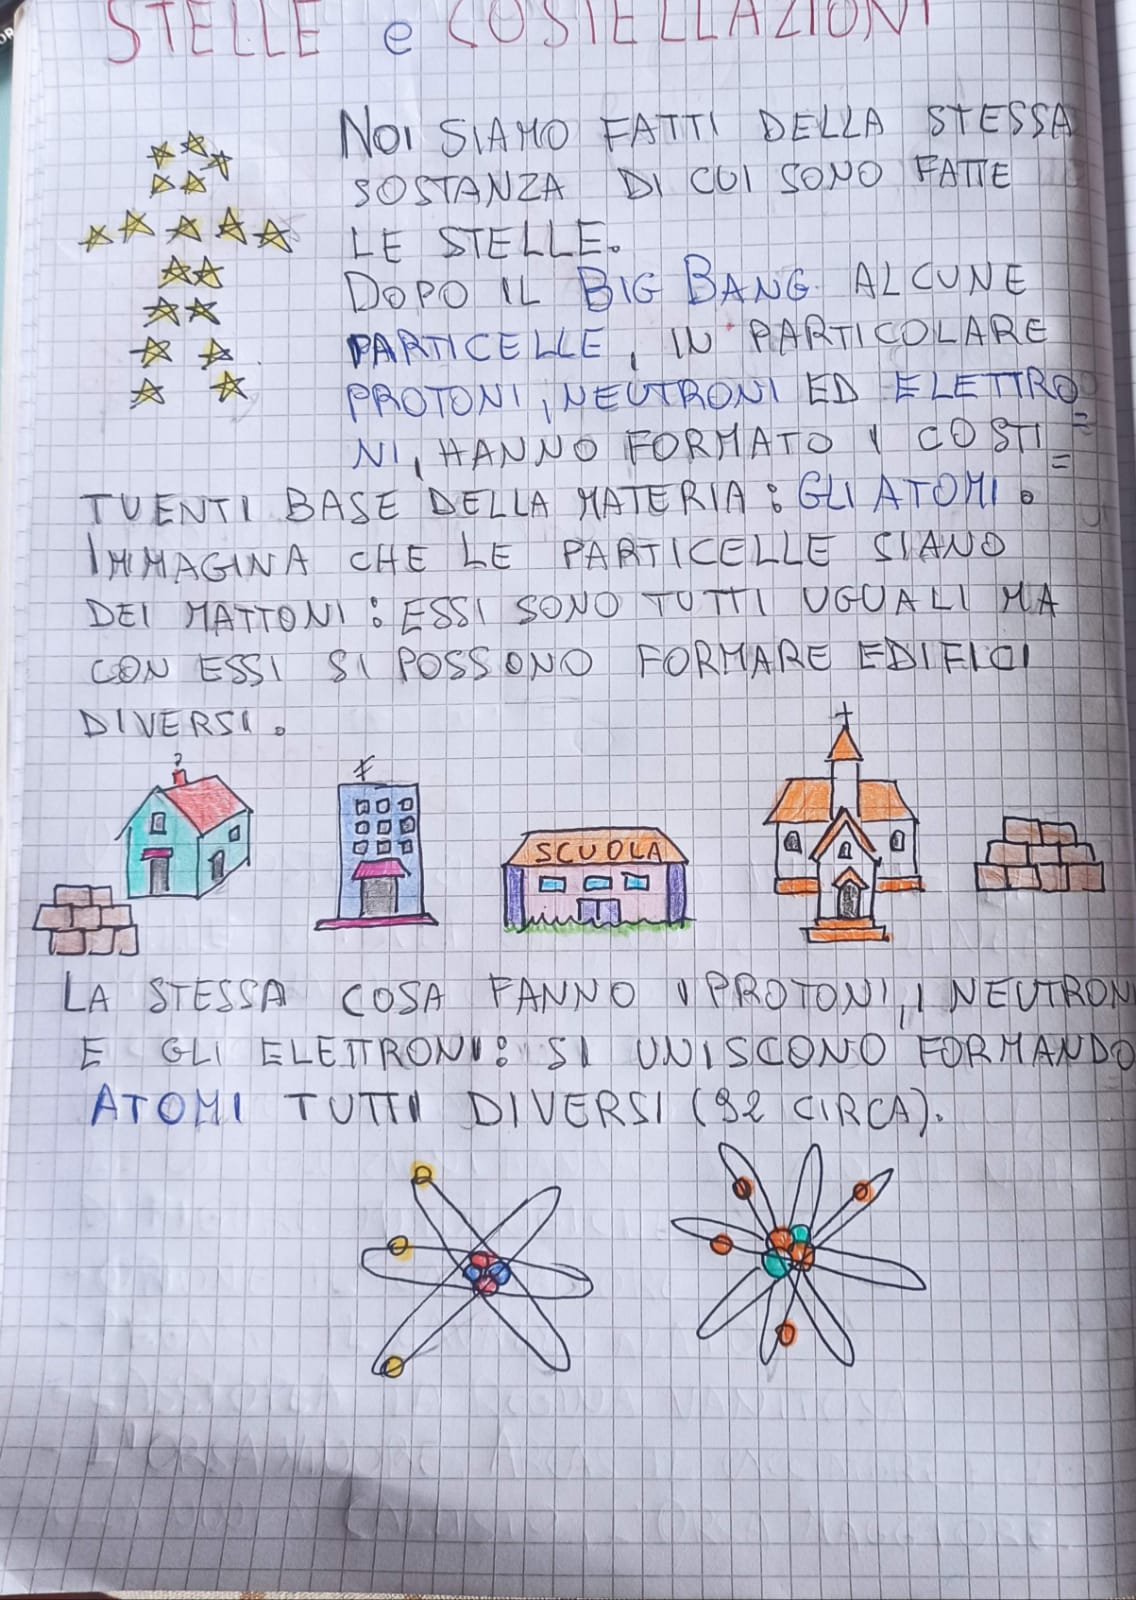 STELLE e COSTELLAZIONI
NOI SIAMO FATTI DELLA STESSA
SOSTANZA DI CUI SONO FATTE
LE STELLE.
DOPO IL BIG BANG ALCUNE
PARTICELLE, IN PARTICOLARE
PROTONI, NEUTRONI ED ELETTRO=
NI, HANNO FORMATO I COSTI=
TUENTI BASE DELLA MATERIA: GLI ATOMI.
IMMAGINA CHE LE PARTICELLE SIANO
DEI MATTONI: ESSI SONO TUTTI UGUALI MA
CON ESSI SI POSSONO FORMARE EDIFICI
DIVERSI.
SCUOLA
LA STESSA COSA FANNO I PROTONI, I NEUTRONI
E GLI ELETTRONI: SI UNISCONO FORMANDO
ATOMI TUTTI DIVERSI (92 CIRCA).